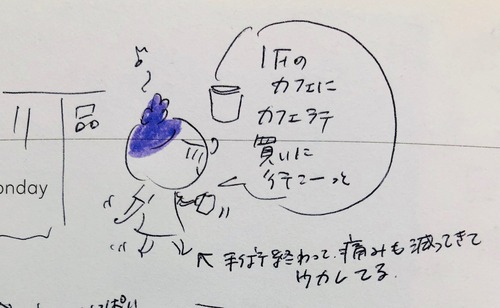 1Fの
カフェに
カフェラテ
買いに
行こーっと
手術終わって、痛みも減ってきて
ウカレてる.
11
onday